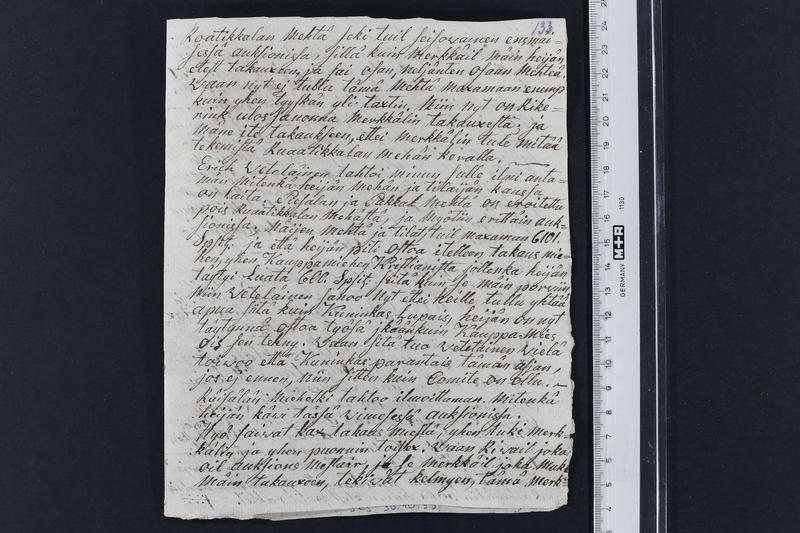 133.
Koatikkalan Mehtä Joki tuil seisowainen ensmäi-
sessä auksionissa, sillä kuin Merkkäil main heijän
etest takauxeen, ja sai osan, neljänten osaan Mehteä.
Waan nyt ej tullu tämä Mehtä maxamaan enemp
kuin yhen tyyskän yli taxtin, Niin nyt on Kike-
rink ulos sanonna Merkkälin takauxesta, ja
mäne ite takaukseen, ettei merkkälin tule mitää
tekemistä Kuaatikkalan mehän keralla.
Erich Weteläinen tahtoi minun sulle ilmi anta-
man Mitenkä heijän mehän ja tilaijän kanssa
on laita. Reisälän ja Pekkal Mehtä on eroitettu
pois Kuaatikkalan Mehästä, ja myötiin erittäin auk-
sionissa. Näijen Mehtä ja tilat tuil maxamun 6101.
Spit: ja että heijän piti ostoa itelleen takaus mie-
hen, yhen Kauppamiehen Kristianista jollenka heijän
täytyi luata 600 Spit: siitä kuin se main porviin
Niin Weteläinen sanoo Nyt ettei heille tullu yhtää
apua siitä kuin Kuninkas lupais, heijän on nyt
täytynnä ostoa työsä ikäänkuin Kauppa Mies
ois sen tehny. Waan sitä tuo Weteläinen Wielä
toiwoo että Kuninkas parantais tämän asian,
jos ej ennen, niin sitten kuin Comite on ollu. –
Räisälän Michelki tahtoo ilmoittaman. Mitenkä
heijän käwi tässä wimesessä auksionissa.
Hyö saiwat kax takaus miestä, yhen Luki Merk-
kälin ja yhen puonnin toisex. Waan Kiwail joka
oil auksione Mestair, ja se Merkkäil joka Muka
Main takauxeen, tekiwät kelmyen, tämä Merk-